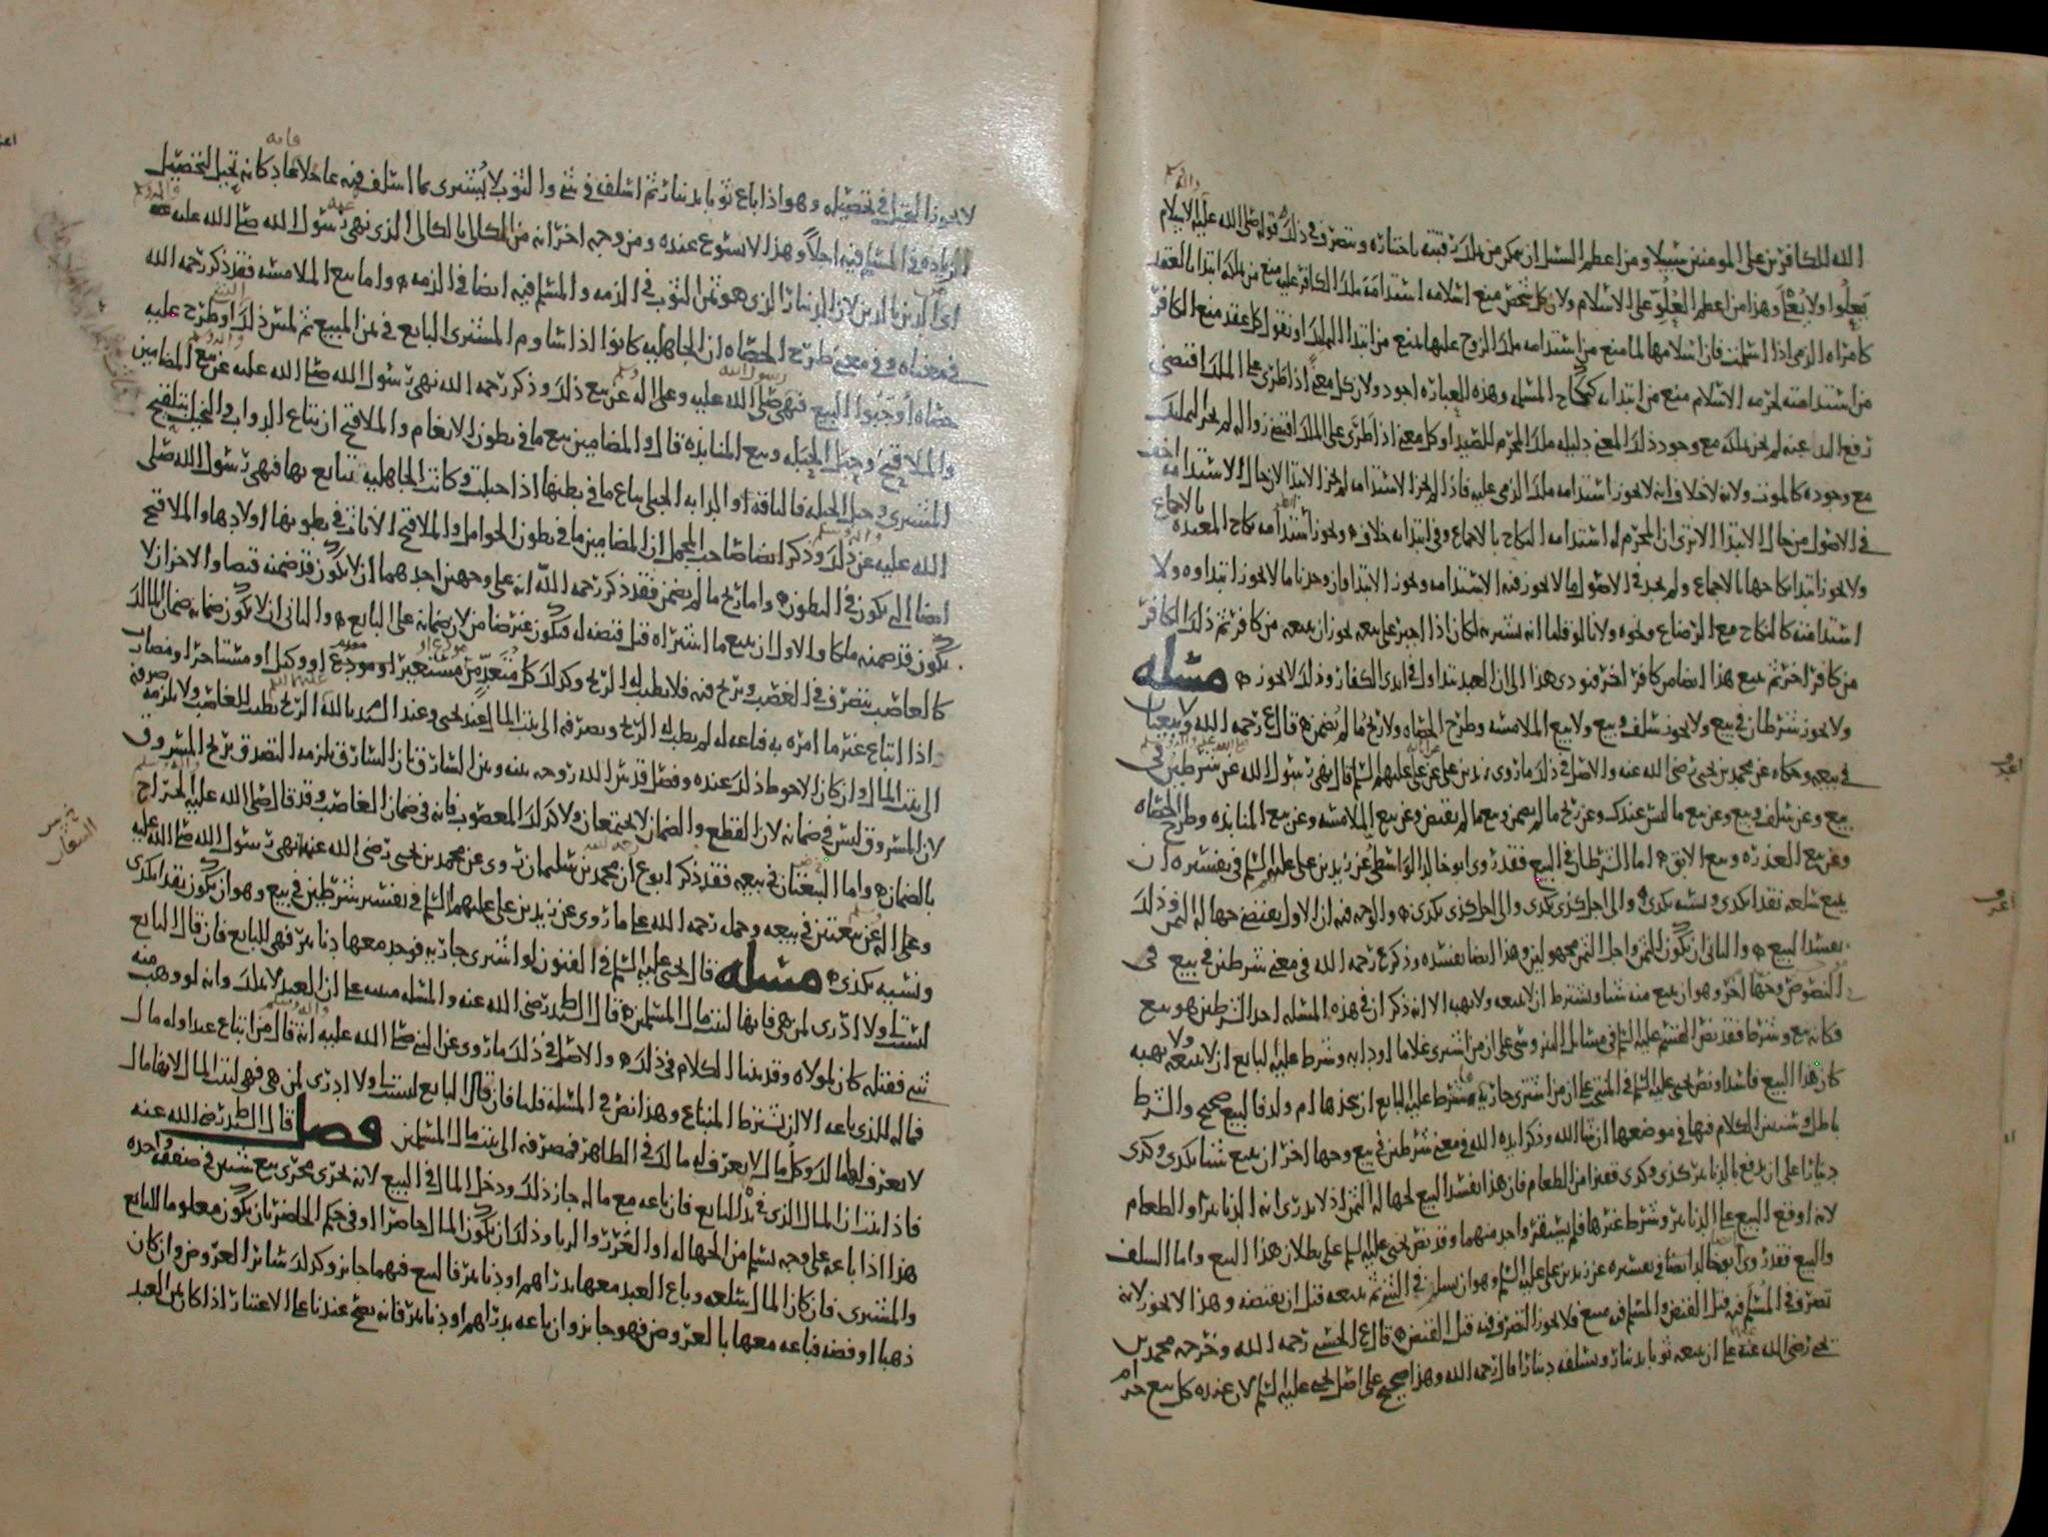 الله للكافرين على المومنين سبيلا ومن اعظم السبل ان يمكن من ملك رقبته باختياره ويتصرف في ذلك وقوله صلى الله عليه واله الاسلام
يعلوا ولا يعلى وهذا من اعظم العلو على الاسلام ولان كل شخص منع اسلامه استدامة ملك الكافر عليه منع من ملكه ابتدا بالعقد
كامراه الذمي اذا اسلمت فان اسلامها لما منع من استدامه ملك الزوج عليها منع من ابتدا الملك او نقول كل عقد منع الكافر
من استدامته لحرمه الاسلام منع من ابتدايه كنكاح المسلمه وهذه العباره اجود ولان كل معنى اذا طرى على الملك اقتضى
رفع اليد عنه لم يجز تملكه مع وجود ذلك المعنى دليله ملك المحرم للصيد او كل معنى اذا طرى على الملك اقتضى زواله لم يجز التمليك
مع وجوده كالموت ولانه لا خلاف انه لا يجوز استدامه ملك الذمي عليه فاذا لم يجز الاستدامه لم يجز الابتدا لان حال الاستدامه اخف
في الاصول من حال الابتدا الا ترى ان المحرم له استدامه النكاح بالاجماع وفي ابتدايه خلاف ويجوز استدامه نكاح المعتده بالاجماع
ولا يجوز ابتدا نكاحها بالاجماع ولم نجد في الاصول ما لا يجوز فيه الاستدامه ويجوز الابتدا وان وجدنا ما لا يجوز ابتداوه ولا
استدامته كالنكاح مع الرضاع ونحوه ولانا لو قلنا انه يشتريه لكان اذا اجبر على بيعه يجوز ان يبيعه من كافر ثم ذلك الكافر
من كافر اخر ثم يبيع هذا ايضا من كافر اخر فيودي هذا الى ان العبد يتداول في ايدي الكفار وذلك لا يجوز مسله
ولا يجوز شرطان في بيع ولا يجوز سلف وبيع ولا بيع الملامسه وطرح الحصاه ولا ربح ما لم يضمن قال ع رحمه الله ولا بيعتان
في بيعه وحكاه عن محمد بن يحيى رضي الله عنه والاصل في ذلك ما روى زيد بن علي عن علي عليهم السلم قال نهى رسول الله عن شرطين في
بيع وعن سلف وبيع وعن بيع ما ليس عندك وعن ربح ما لم يضمن وبيع ما لم يقبض وعن بيع الملامسه وعن بيع المنابذه وطرح الحصاه
وعن بيع الغرر وبيع الابق اما الشرطان في البيع فقد روى ابو خالد الواسطي عن زيد بن علي عليه السلم في تفسيره ان
يبيع سلعه نقدا بكذى ونسيه بكذى والى اجل كذى بكذى والى اجل كذى بكذى والوجه فيه ان الاول يقتضي جهاله الثمن وذلك
يفسد البيع والثاني ان يكون الثمن واجل الثمن مجهولين وهذا ايضا يفسده وذكر ع رحمه الله في معنى شرطين في بيع في
النصوص وجها اخر وهو ان يبيع منه شيا ويشترط ان لا يبيعه ولا يهبه الا انه ذكر ان في هذه المسله احد الشرطين هو بيع
فكانه بيع وشرط فقد نص القسم عليه السلم في مسايل النيروسي على ان من اشترى غلاما او دابه وشرط عليه البايع ان لا يبيعه ولا يهبه
كان هذا البيع فاسدا ونص يحيى عليه السلم في المنتخب على ان من اشترى جاريه فشرط عليه البايع ان يتخذها ام ولد فالبيع صحيح والشرط
باطل وسنبين الكلام فيها في موضعها ان شا الله وذكر ايده الله في معنى شرطين في بيع وجها اخر ان يبيع شيا بكذى وكذى
دينارا على ان يدفع بالدنانير كذى وكذى قفيزا من الطعام فان هذا يفسد البيع لجهاله الثمن اذ لا يدرى انه الدنانير او الطعام
لانه اوقع البيع على الدنانير وشرط غيرها فلم يستقر واحد منهما وقد نص يحيى عليه السلم على بطلان هذا البيع واما السلف
والبيع فقد روى ابو خالد ايضا في تفسيره عن زيد بن علي عليه السلم وهو ان يسلم في الشي ثم يبيعه قبل ان يقبضه وهذا لا يجوز لانه
تصرف في المسلم فيه قبل القبض والمسلم فيه مبيع فلا يجوز التصرف فيه قبل القبض قال ع الحسني رحمه الله وخرجه محمد بن
يحيى رضي الله عنه على ان يبيعه ثوبا بدينار ويسلفه دينارا قال رحمه الله وهذا صحيح على اصل يحيى عليه السلم لان عنده كل بيع حرام
لا يجوز الحيل في تحصيله وهو اذا باع ثوبا بدينار ثم اسلف في شي والثوب لا يشترى بما اسلف فيه عاجلا فانه كانه تحيل لتحصيل
الزياده في المسلم فيه اجلا وهذا لا يسوغ عنده ومن وجه اخر انه من الكالي بالكالي الذي نهى رسول الله صلى الله عليه واله وسلم عنه
اي الدين بالدين لان الدينار الذي هو ثمن الثوب في الذمه والمسلم فيه ايضا في الذمه واما بيع الملامسه فقد ذكر رحمه الله
في معناه وفي معنى طرح الحصاه ان الجاهليه كانوا اذا شاوم المشتري البايع في ثمن المبيع ثم لمس ذلك او طرح عليه
حصاه اوجبوا البيع فنهى صلى الله عليه وعلى اله عن بيع ذلك وذكر رحمه الله نهى رسول الله صلى الله عليه عن بيع المضامين
والملاقيح وحبل الحبله وبيع المنابذه قال والمضامين بيع ما في بطون الانعام والملاقيح ان يبتاع الدواب في النخل بتلقيح
المشتري وحبل الحبله فالناقه او الدابه الحبلى يباع ما في بطنها اذا حبلت وكانت الجاهليه تتبايع بها فنهى رسول الله صلى
الله عليه عن ذلك وذكر ايضا صاحب المجمل ان المضامين ما في بطون الحوامل والملاقح الاناث في بطونها اولادها والملاقيح
ايضا التي يكون في البطون واما ربح ما لم يضمن فقد ذكر رحمه الله انه على وجهين احدهما ان لا يكون قد ضمنه قبضا والاخر ان لا
يكون قد ضمنه ملكا والاول ان يبيع ما اشتراه قبل قبضه له فيكون غير ضامن لان ضمانه على البايع والثاني ان لا يكون ضمانه ضمان المالك
كالغاصب يتصرف في الغصب ويربح فيه فلا يطيب له الربح وكذلك كل متعد من مستعير او مودع او وكيل او مستاجر او مضارب
واذا ابتاع غير ما امره به فباعه له لم يطب له الربح ويصرفه الى بيت المال عند يحيى وعند السيد بالله الربح يطيب للغاصب ولا يلزمه صرفه
الى بيت المال وان كان الاحوط ذلك عنده وفصل قدس الله روحه بينه وبين السارق بان السارق يلزمه التصدق بربح المسروق
لان المسروق ليس في ضمانه لان القطع والضمان لا يجتمعان ولا كذلك المغصوب فانه في ضمان الغاصب وقد قال صلى الله عليه الخراج
بالضمان واما البيعتان في بيعه فقد ذكر ابو ع ان محمد بن سليمان روى عن محمد بن يحيى رضي الله عنهما نهى رسول الله صلى الله عليه
وعلى اله عن بيعتين في بيعه وحمل رحمه الله على ما روى عن زيد بن علي عليهم السلم في تفسير شرطين في بيع وهو ان يكون نقدا بكذى
ونسيه بكذى مسله قال يحيى عليه السلم في الفنون لو اشترى جاريه فوجد معها دنانير فهي للبايع فان قال البايع
ليست لي ولا ادري لمن هي فانها لبيت مال المسلمين قال السيد رضي الله عنه والمسله مبنيه على ان العبد لا يملك وانه لو وهب منه
شي فقبله كان لمولاه وقد بينا الكلام في ذلك والاصل في ذلك ما روى عن النبي صلى الله عليه انه قال من ابتاع عبدا وله مال
فماله للذي باعه الا ان يشترط المبتاع وهذا نص في المسله قلنا فان قال البايع ليست لي ولا ادري لمن هي فهي لبيت المال لانها مال
لا يعرف لها مالك وكل مال لا يعرف له مالك في الظاهر فمصرفه الى بيت مال المسلمين فصل قال السيد رضي الله عنه
فاذا ثبت ان المال الذي في يده للبايع فان باعه مع ماله جاز ذلك ودخل المال في البيع لانه يجري مجرى بيع شيين في صفقه واحده
هذا اذا باعه على وجه يسلم من الجهاله او الغرر والربا وذلك ان يكون المال حاضرا او في حكم الحاضر بان يكون معلوما للبايع
والمشتري فان كان المال سلعه وباع العبد معها بدراهم او دنانير فالبيع فيهما جايز وكذلك ساير العروض وان كان
ذهبا او فضه فباعه معها بالعروض فهو جايز وان باعه بدراهم او دنانير فانه يصح عندنا على الاعتبار اذا كان ثمن العبد